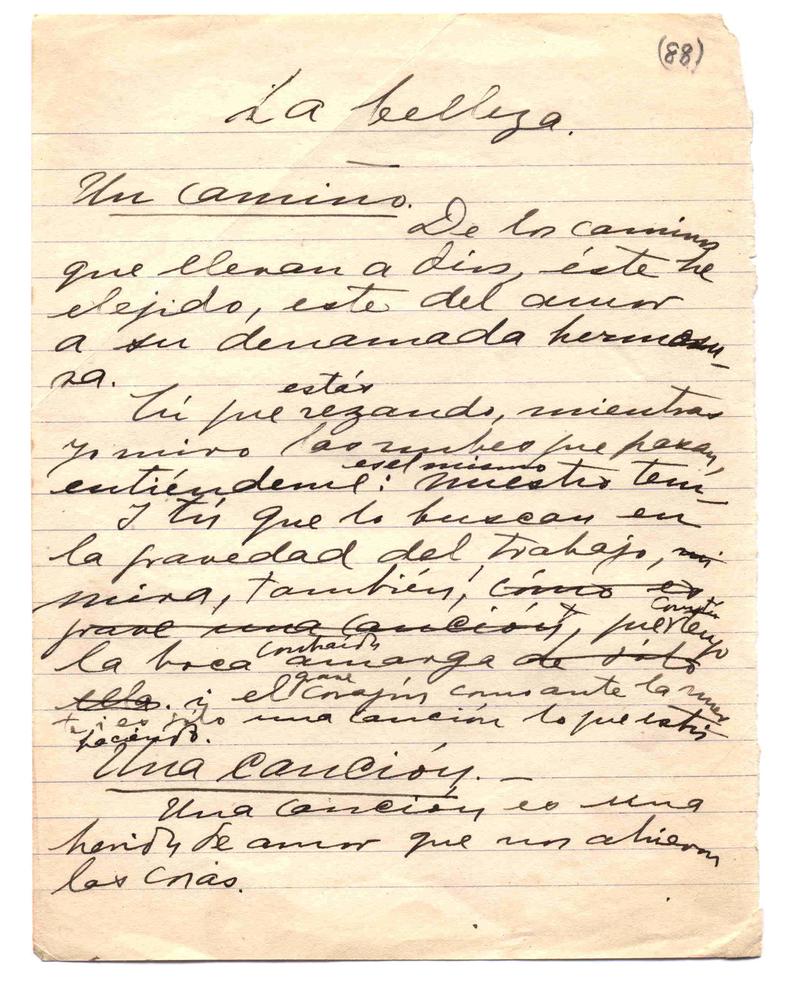 (88)
La belleza.
Un camino.
De los caminos
que llevan a dios, éste he
elejido, este del amor
a su derramada hermosu-
ra.
estás
Tú que rezando, mientras
yo miro las nubes que pasan,
es el mismo
entiéndeme: nuestro
Y tú que lo buscan en
la gravedad del trabajo, mi
mira, también, cómo es
grave una canción, que tengo
contraída
la boca amarga de sólo
grave
ella. y el corazón como ante la
y es sólo una canción lo que estás
haciendo.
Una canción.-
Una canción es una
herida de amor que nos abrieron
las cosas.